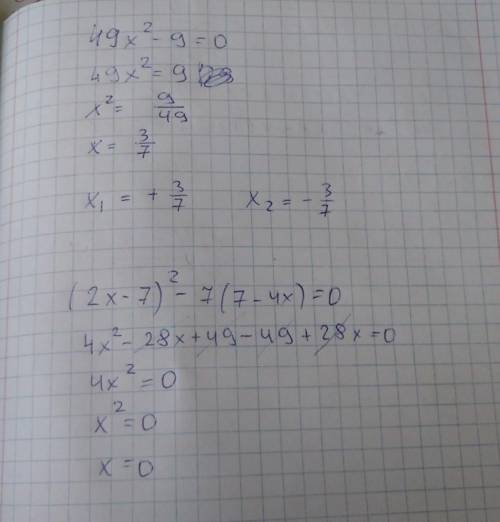 49x² - 9 = 0
49x² = 9
x² = 9/49
x = 3/7
x₁ = + 3/7 x₂ = - 3/7
(2x - 7)² - 7(7 - 4x) = 0
4x² - 28x + 49 - 49 + 28x = 0
4x² = 0
x² = 0
x = 0